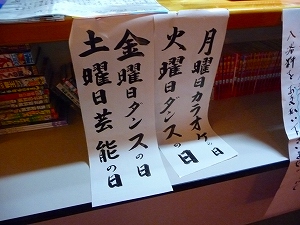 月曜日カラオケの日
火曜日ダンスの日
金曜日ダンスの日
土曜日芸能の日